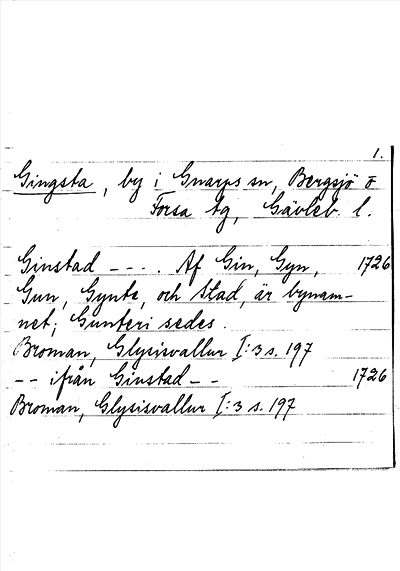 1.
Gingsta, by i Gnarps sn, Bergsjö o
Forsa tg, Gävleb. l.
Ginstad ---. Af Gin, Gyn, 1726
Gun, Gynte, och Stad, är bynam-
net; Gunteri sedes.
Broman, Glysisvallur I:3 s. 197
-- ifrån Ginstad -- 1726
Broman, Glysisvallur I:3 s. 197